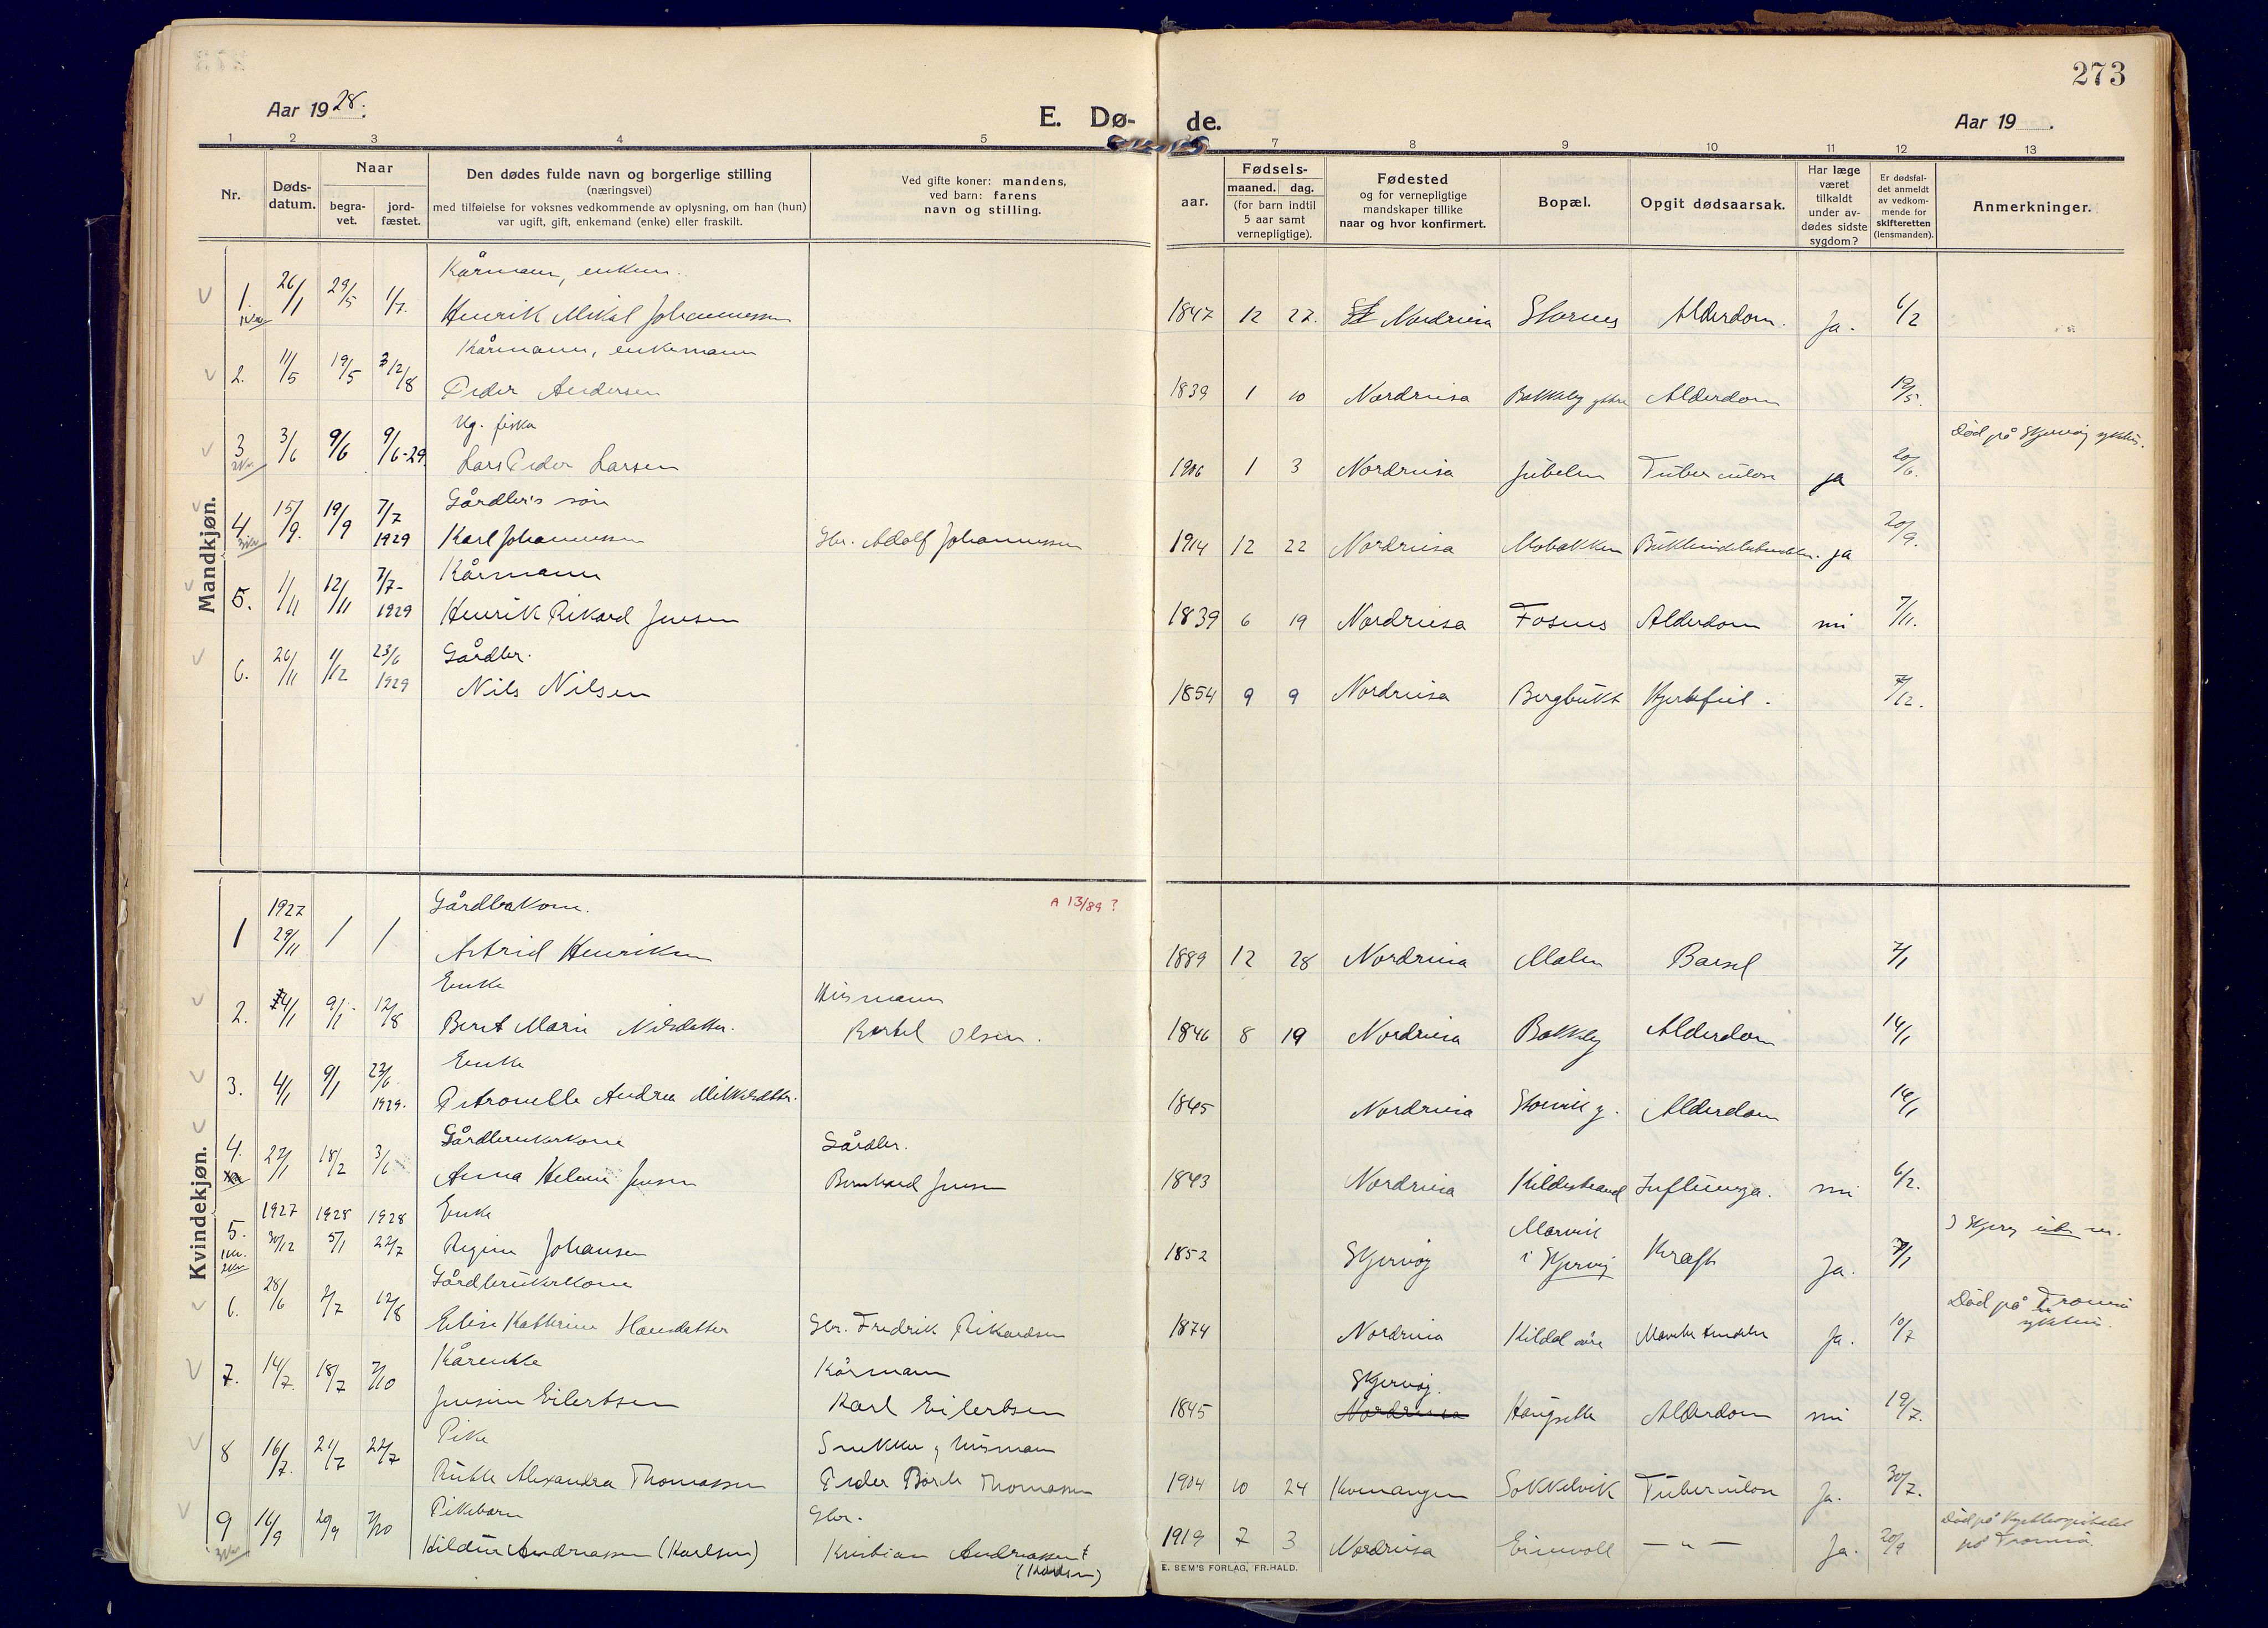 273
Aar 1928.
E. Dø-
de.
Aar 19 .
1 2 3 4 5 7 8 9 10 11 12 13
Nr.
Døds-
datum.
Naar
begra-
vet.
jord-
fæstet.
Den dødes fulde navn og borgerlige stilling
(næringsvei)
med tilføielse for voksnes vedkommende av oplysning, om han (hun)
var ugift, gift, enkemand (enke) eller fraskilt.
Ved gifte koner: mandens,
ved barn: farens
navn og stilling.
aar.
Fødsels-
maaned. dag.
(for barn indtil
5 aar samt
vernepligtige).
Fødested
og for vernepligtige
mandskaper tillike
naar og hvor konfirmert.
Bopæl.
Opgit dødsaarsak.
Har læge
været
tilkaldt
under av-
dødes sidste
sygdom?
Er dødsfal-
det anmeldt
av vedkom-
mende for
skifteretten
(lensmanden).
Anmerkninger.
Mandkjøn.
Kårmann, enkem.
1. 26/1 29/5 1/7. Henrik Mikal Johannessen 1847 12 27. Nordreisa Stornes Alderdom. Ja. 6/2
Kårmann, enkemann
2. 11/5 19/5 12/8 Peder Andersen 1839 1 10 Nordreisa Bakkeby ytre Alderdom 19/5.
Ug. fisker
Død på Skjervøy sykehus.
3 3/6 9/6 9/6-29 Lars Peder Larsen 1906 1 3 Nordreisa Jubelen Tuberculose ja 20/6.
Gårdbr's søn
4. 15/9. 19/9 7/7 1929 Karl Johannessen Gbr. Adolf Johannessen 1914 12 22 Nordreisa Mobakken ja 20/9.
Kårmann
5. 1/11 12/11 7/7- 1929 Henrik Rikard Jensen 1839 6 19 Nordreisa Fosnes Alderdom nei 7/11.
Gårdbr.
6. 26/11 1/12 23/6 1929 Nils Nilsen 1854 9 9 Nordreisa Bergbukt Hjertefeil. 7/12.
Kvindekjøn.
1927 Gårdbrkone. A 13/89 ?
1 29/11 / / Astrid Henriksen 1889 12 28 Nordreisa Malen Barsel 7/1
Enke Husmann
2. 4/1 9/1 12/8 Beret Marie Nilsdatter. Bertel Olsen. 1846 8 19 Nordreisa Bakkeby Alderdom 14/1
Enke
3. 4/1 9/1 23/6 1929. Petronelle Andrea Mikkelsdatter. 1845 Nordreisa Storvik Alderdom 14/1
Gårdbrukerkone Gårdbr.
4. 27/1 18/2 3/6 Anna Helene Jensen Bernhard Jensen 1843 Nordreisa Kildestrand Influensa. nei 6/2.
1927 1928 1928 Enke Marvik
5. 30/12 5/1 22/7 Regine Johansen 1852 Skjervøy i Skjervøy Kræft Ja. 7/1
Gårdbrukerkone Død på Tromsø sykehus.
6. 28/6 2/7 12/8 Elise Kathrine Hansdatter Gbr. Fredrik Rikardsen 1874 Nordreisa Kildal øvre Ja. 10/7
Kårenke Kårmann Skjervøy.
7. 14/7. 18/7 7/10 Jensine Eilertsen Karl Eilertsen 1845 Nordreisa Haugsette Alderdom nei 19/7.
Pike Snekker, husmann
8 16/7. 21/7 22/7 Ruthe Alexandra Thomassen Peder Borch Thomassen 1904 10 24 Kvenangen Sokkelvik Tuberculose Ja. 30/7.
Pikebarn Gbr. Død på Kysthospitalet
9 16/9 20/9 7/10 Hildur Andreassen (Karlsen) Kristian Andreassen (Karlsen) 1919 7 3 Nordreisa Eimevoll — " — Ja. 20/9 på Tromsø.
E. SEM'S FORLAG, FR.HALD.